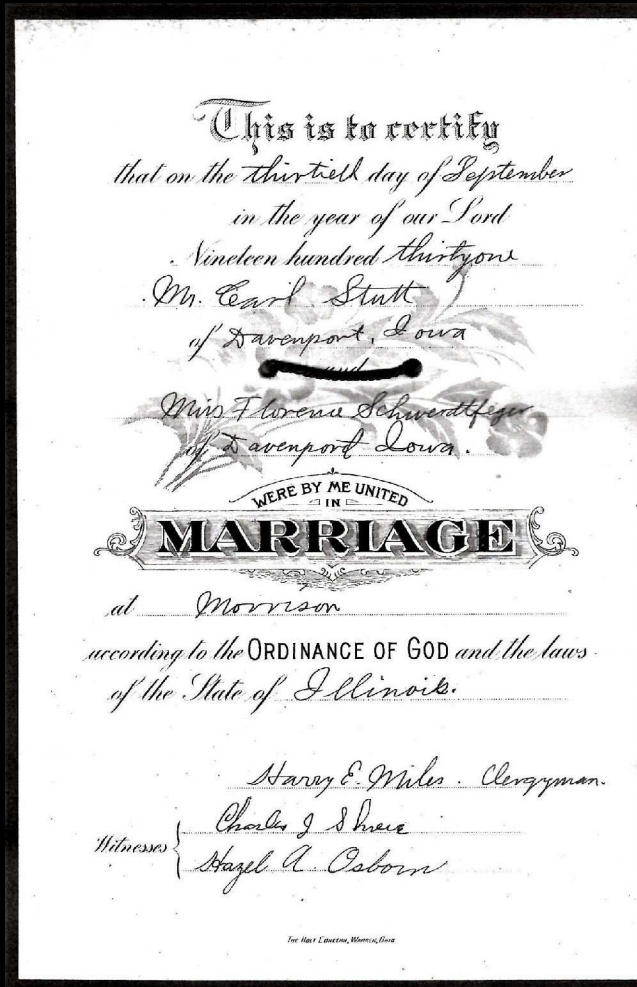 This is to certify
that on the thirtieth day of September
in the year of our Lord
Nineteen hundred thirtyone
Mr. Carl Stutt
of Davenport, Iowa
and
Miss Florence Schwerdtfeger
of Davenport Iowa.
WERE BY ME UNITED
IN
MARRIAGE
at Morrison
according to the ORDINANCE OF GOD and the laws
of the State of Illinois.
Harry E. Miles. Clergyman.
Witnesses
Charles J
Hazel A. Osborn